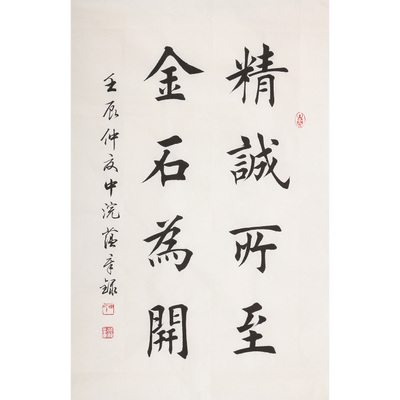 精誠所至
金石為開
壬辰仲夏中浣蔭亭錄